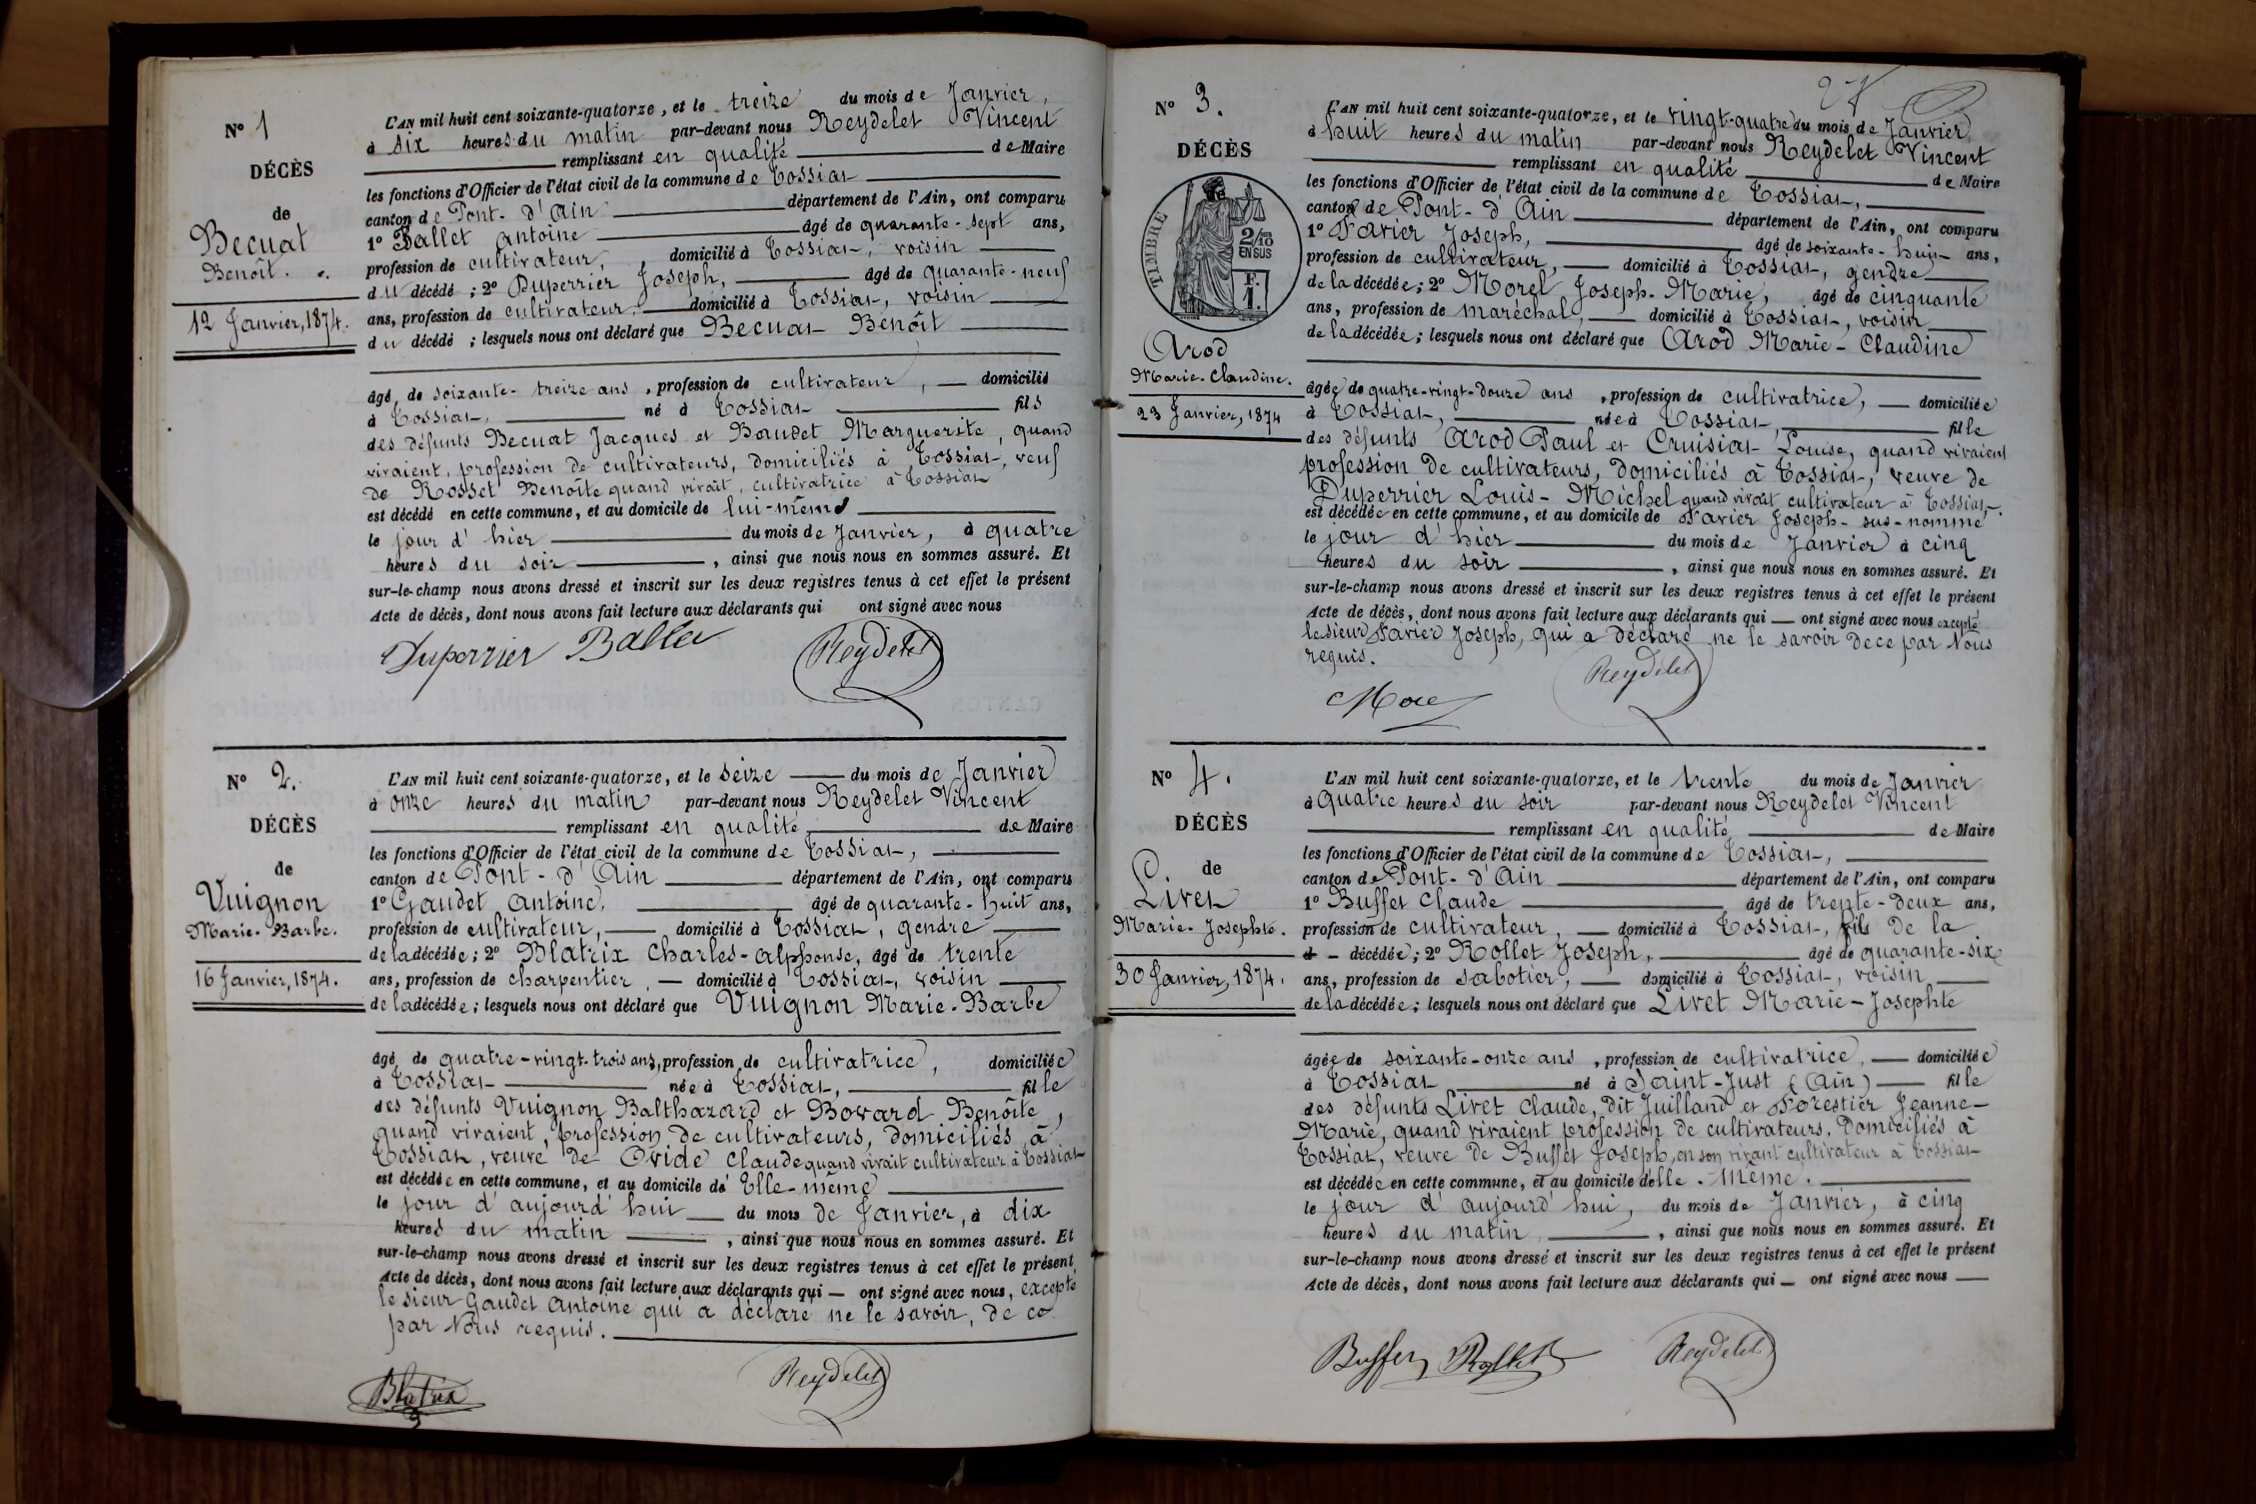 N° 1
DÉCÈS
de
Becuat
Benoît.
12 Janvier, 1874.
L'AN mil huit cent soixante-quatorze, et le treize du mois de Janvier,
à six heures du matin par-devant nous Reydelet Vincent
remplissant en qualité de Maire
les fonctions d'Officier de l'état civil de la commune de Tossiat
canton de Pont-d'Ain département de l'Ain, ont comparu
1° Ballet Antoine âgé de quarante-sept ans,
profession de cultivateur, domicilié à Tossiat, voisin
du décédé ; 2° Duperrier Joseph, âgé de quarante-neuf
ans, profession de cultivateur, domicilié à Tossiat, voisin
du décédé ; lesquels nous ont déclaré que Becuat Benoît
âgé de soixante-treize ans, profession de cultivateur, domicilié
à Tossiat, né à Tossiat fils
des défunts Becuat Jacques et Baudet Marguerite, quand
vivaient, profession de cultivateurs, domiciliés à Tossiat, veuf
de Rosset Benoîte quand vivait, cultivatrice à Tossiat
est décédé en cette commune, et au domicile de lui-même
le jour d'hier du mois de Janvier, à quatre
heures du soir, ainsi que nous nous en sommes assuré. Et
sur-le-champ nous avons dressé et inscrit sur les deux registres tenus à cet effet le présent
Acte de décès, dont nous avons fait lecture aux déclarants qui ont signé avec nous
Duperrier Ballet Reydelet
N° 2.
DÉCÈS
de
Vuignon
Marie-Barbe.
16 Janvier, 1874.
L'AN mil huit cent soixante-quatorze, et le seize du mois de Janvier
à onze heures du matin par-devant nous Reydelet Vincent
remplissant en qualité de Maire
les fonctions d'Officier de l'état civil de la commune de Tossiat,
canton de Pont-d'Ain département de l'Ain, ont comparu
1° Gaudet Antoine, âgé de quarante-huit ans,
profession de cultivateur, domicilié à Tossiat, gendre
de la décédée ; 2° Blatrix Charles-Alphonse, âgé de trente
ans, profession de charpentier, domicilié à Tossiat, voisin
de la décédée ; lesquels nous ont déclaré que Vuignon Marie-Barbe
âgé de quatre-vingt-trois ans, profession de cultivatrice, domiciliée
à Tossiat née à Tossiat, fille
des défunts Vuignon Balthazard et Bovard Benoîte,
quand vivaient, profession de cultivateurs, domiciliés à
Tossiat, veuve de Ovide Claude quand vivait cultivateur à Tossiat
est décédée en cette commune, et au domicile de Elle-même
le jour d'aujourd'hui du mois de Janvier, à dix
heures du matin, ainsi que nous nous en sommes assuré. Et
sur-le-champ nous avons dressé et inscrit sur les deux registres tenus à cet effet le présent
Acte de décès, dont nous avons fait lecture aux déclarants qui — ont signé avec nous, excepté
le sieur Gaudet Antoine qui a déclaré ne le savoir, de ce
par Nous requis.
Blatrix Reydelet
N° 3.
DÉCÈS
TIMBRE
2/10 EN SUS
F. 1.
Arod
Marie-Claudine.
23 Janvier, 1874
L'AN mil huit cent soixante-quatorze, et le vingt-quatre du mois de Janvier
à huit heures du matin par-devant nous Reydelet Vincent
remplissant en qualité de Maire
les fonctions d'Officier de l'état civil de la commune de Tossiat,
canton de Pont-d'Ain département de l'Ain, ont comparu
1° Favier Joseph, âgé de soixante-huit ans,
profession de cultivateur, domicilié à Tossiat, gendre
de la décédée ; 2° Morel Joseph-Marie, âgé de cinquante
ans, profession de maréchal, domicilié à Tossiat, voisin
de la décédée ; lesquels nous ont déclaré que Arod Marie-Claudine
âgée de quatre-vingt-douze ans, profession de cultivatrice, domiciliée
à Tossiat, née à Tossiat, fille
des défunts Arod Paul et Cruisiat Louise, quand vivaient
profession de cultivateurs, domiciliés à Tossiat, veuve de
Duperrier Louis-Michel quand vivait cultivateur à Tossiat.
est décédée en cette commune, et au domicile de Favier Joseph-sus-nommé
le jour d'hier du mois de Janvier à cinq
heures du soir, ainsi que nous nous en sommes assuré. Et
sur-le-champ nous avons dressé et inscrit sur les deux registres tenus à cet effet le présent
Acte de décès, dont nous avons fait lecture aux déclarants qui — ont signé avec nous excepté
le sieur Favier Joseph, qui a déclaré ne le savoir de ce par Nous
requis.
Morel Reydelet
N° 4.
DÉCÈS
de
Livet
Marie-Josephte.
30 Janvier, 1874.
L'AN mil huit cent soixante-quatorze, et le trente du mois de Janvier
à quatre heures du soir par-devant nous Reydelet Vincent
remplissant en qualité de Maire
les fonctions d'Officier de l'état civil de la commune de Tossiat,
canton de Pont-d'Ain département de l'Ain, ont comparu
1° Buffet Claude âgé de trente-deux ans,
profession de cultivateur, domicilié à Tossiat, fils de la
décédée ; 2° Rollet Joseph, âgé de quarante-six
ans, profession de sabotier, domicilié à Tossiat, voisin
de la décédée ; lesquels nous ont déclaré que Livet Marie-Josephte
âgée de soixante-onze ans, profession de cultivatrice, domiciliée
à Tossiat né à Saint-Just (Ain) fille
des défunts Livet Claude, dit Juilland et Forestier Jeanne-
Marie, quand vivaient profession de cultivateurs, domiciliés à
Tossiat, veuve de Buffet Joseph, en son vivant cultivateur à Tossiat
est décédée en cette commune, et au domicile d'elle-même.
le jour d'aujourd'hui, du mois de Janvier, à cinq
heures du matin, ainsi que nous nous en sommes assuré. Et
sur-le-champ nous avons dressé et inscrit sur les deux registres tenus à cet effet le présent
Acte de décès, dont nous avons fait lecture aux déclarants qui — ont signé avec nous
Buffet Rollet Reydelet